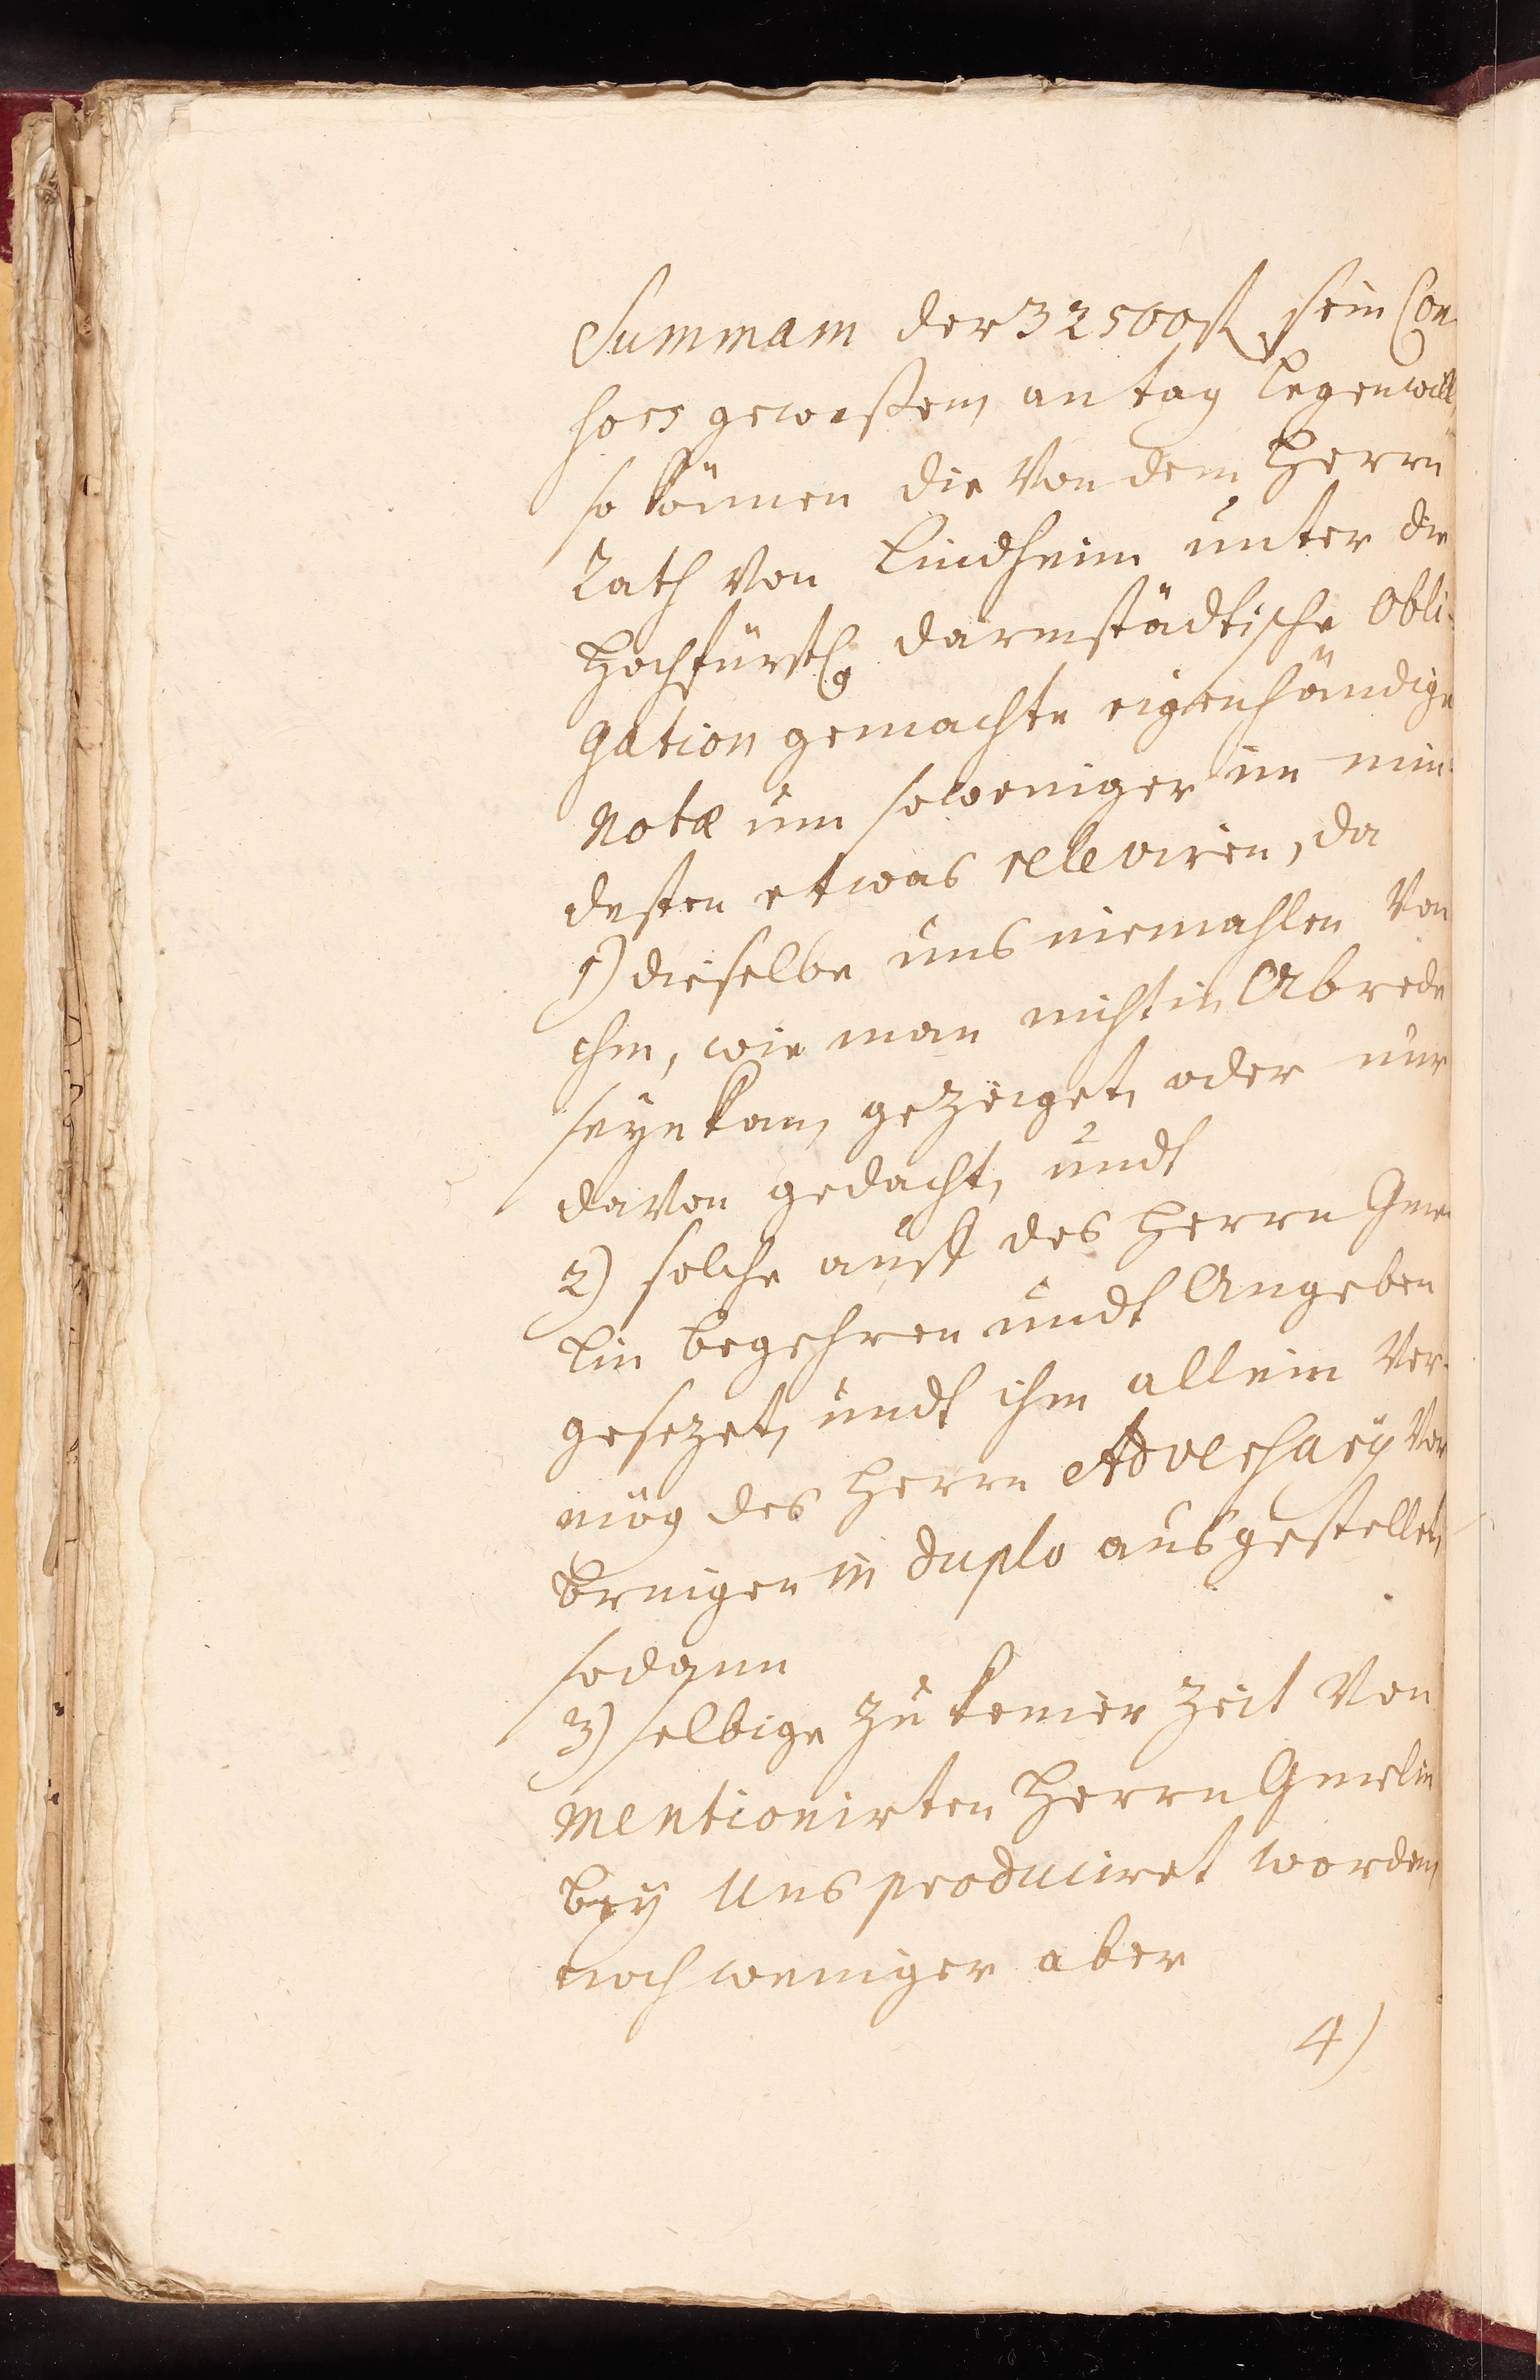 Summam der 32500 fl sein Con-
sors geweßen, an tag legen will,
so können die Von dem Herrn
Rath Von Lindheim unter die
Hochfürstl. Darmstädtische Obli-
gation gemachte eigenhändige
Notæ um soweniger im min-
desten etwas releviren, da
1) dieselbe uns niemahlen Von
ihm, wie man nicht in Abrede
seyn kan, gezeiget, oder nur
davon gedacht, undt
2) solche auff des Herrn Gme-
lin begehren undt Angeben
gesezet, undt ihm allein Ver-
mög des Herrn Adversarÿ Vor-
bringen in duplo ausgestellet,
sodann
3) selbige zu keiner Zeit Von
mentionirten Herrn Gmelin
beÿ Uns produciret worden,
noch weniger aber
4)